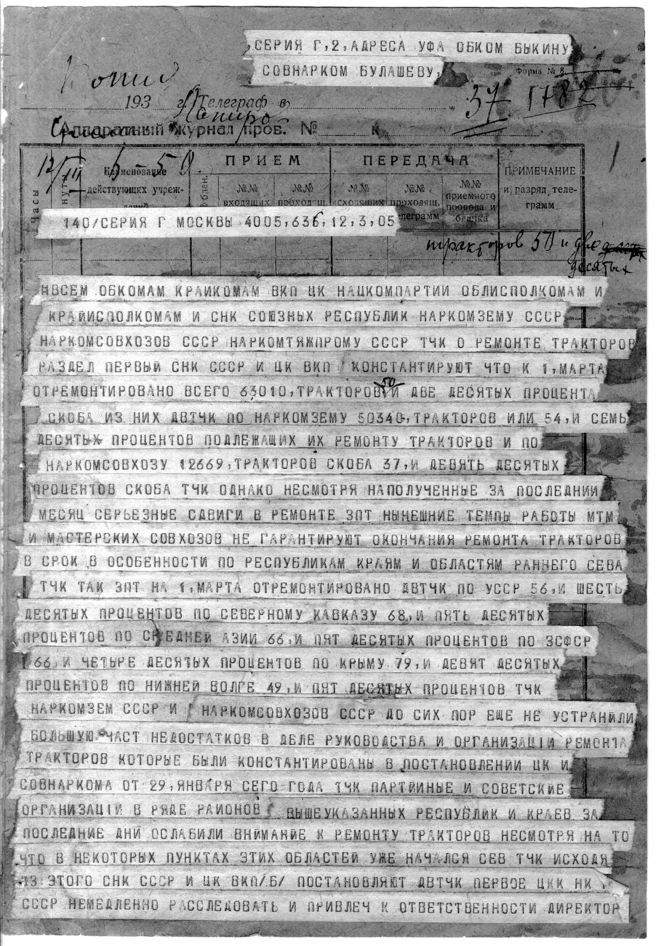 СЕРИЯ Г,2,АДРЕСА УФА ОБКОМ БЫКИНУ
СОВНАРКОМ БУЛАШЕВУ,
Форма №
Копия
193 г. Телеграф в
37 1782
Аппаратный журнал пров. №
12/III 5-50
Часы
минуты
Наименование действующих учреж-
ПРИЕМ
ПЕРЕДАЧА
ПРИМЕЧАНИЕ
и разряд теле-
грамм
№№ входящих
№№ проходящ.
№№ исходящих
№№ проходящ. телеграмм
№№ приемного провода и бланка
140/СЕРИЯ Г МОСКВЫ 4005,636,12,3,05
тракторов 50 и две
десятых
НВСЕМ ОБКОМАМ КРАЙКОМАМ ВКП ЦК НАЦКОМПАРТИИ ОБЛИСПОЛКОМАМ И
КРАЙИСПОЛКОМАМ И СНК СОЮЗНЫХ РЕСПУБЛИК НАРКОМЗЕМУ СССР
НАРКОМСОВХОЗОВ СССР НАРКОМТЯЖПРОМУ СССР ТЧК О РЕМОНТЕ ТРАКТОРОВ
РАЗДЕЛ ПЕРВЫЙ СНК СССР И ЦК ВКП КОНСТАНТИРУЮТ ЧТО К 1,МАРТА
50
ОТРЕМОНТИРОВАНО ВСЕГО 63010,ТРАКТОРОВ И ДВЕ ДЕСЯТЫХ ПРОЦЕНТА
СКОБА ИЗ НИХ ДВТЧК ПО НАРКОМЗЕМУ 50340,ТРАКТОРОВ ИЛИ 54,И СЕМЬ
ДЕСЯТЫХ ПРОЦЕНТОВ ПОДЛЕЖАЩИХ ИХ РЕМОНТУ ТРАКТОРОВ И ПО
НАРКОМСОВХОЗУ 12669,ТРАКТОРОВ СКОБА 37,И ДЕВЯТЬ ДЕСЯТЫХ
ПРОЦЕНТОВ СКОБА ТЧК ОДНАКО НЕСМОТРЯ НАПОЛУЧЕННЫЕ ЗА ПОСЛЕДНИИ
МЕСЯЦ СЕРЬЕЗНЫЕ СДВИГИ В РЕМОНТЕ ЗПТ НЫНЕШНИЕ ТЕМПЫ РАБОТЫ МТМ
И МАСТЕРСКИХ СОВХОЗОВ НЕ ГАРАНТИРУЮТ ОКОНЧАНИЯ РЕМОНТА ТРАКТОРОВ
В СРОК В ОСОБЕННОСТИ ПО РЕСПУБЛИКАМ КРАЯМ И ОБЛАСТЯМ РАННЕГО СЕВА
ТЧК ТАК ЗПТ НА 1,МАРТА ОТРЕМОНТИРОВАНО ДВТЧК ПО УССР 56,И ШЕСТЬ
ДЕСЯТЫХ ПРОЦЕНТОВ ПО СЕВЕРНОМУ КАВКАЗУ 68,И ПЯТЬ ДЕСЯТЫХ
ПРОЦЕНТОВ ПО СРЕДНЕЙ АЗИИ 66,И ПЯТ ДЕСЯТЫХ ПРОЦЕНТОВ ПО ЗСФСР
66,И ЧЕТЫРЕ ДЕСЯТЫХ ПРОЦЕНТОВ ПО КРЫМУ 79,И ДЕВЯТ ДЕСЯТЫХ
ПРОЦЕНТОВ ПО НИЖНЕЙ ВОЛГЕ 49,И ПЯТ ДЕСЯТЫХ ПРОЦЕНТОВ ТЧК
НАРКОМЗЕМ СССР И НАРКОМСОВХОЗОВ СССР ДО СИХ ПОР ЕЩЕ НЕ УСТРАНИЛИ
БОЛЬШУЮ ЧАСТ НЕДОСТАТКОВ В ДЕЛЕ РУКОВОДСТВА И ОРГАНИЗАЦIИ РЕМОНТА
ТРАКТОРОВ КОТОРЫЕ БЫЛИ КОНСТАНТИРОВАНЫ В ПОСТАНОВЛЕНИИ ЦК И
СОВНАРКОМА ОТ 29,ЯНВАРЯ СЕГО ГОДА ТЧК ПАРТИИНЫЕ И СОВЕТСКИЕ
ОРГАНИЗАЦIИ В РЯДЕ РАЙОНОВ ВЫШЕУКАЗАННЫХ РЕСПУБЛИК И КРАЕВ ЗА
ПОСЛЕДНИЕ ДНИ ОСЛАБИЛИ ВНИМАНИЕ К РЕМОНТУ ТРАКТОРОВ НЕСМОТРЯ НА ТО
ЧТО В НЕКОТОРЫХ ПУНКТАХ ЭТИХ ОБЛАСТЕЙ УЖЕ НАЧАЛСЯ СЕВ ТЧК ИСХОДЯ
ИЗ ЭТОГО СНК СССР И ЦК ВКП/Б/ ПОСТАНОВЛЯЮТ ДВТЧК ПЕРВОЕ ЦКК НК
СССР НЕМЕДЛЕННО РАССЛЕДОВАТЬ И ПРИВЛЕЧ К ОТВЕТСТВЕННОСТИ ДИРЕКТОР